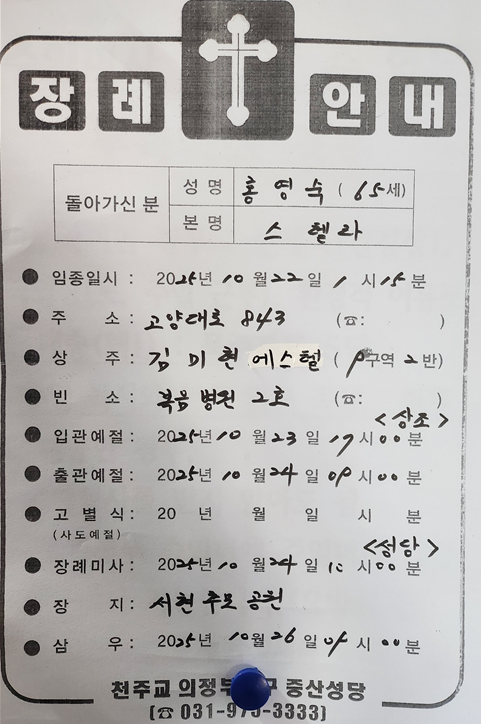 장례 안내
돌아가신 분
성 명 홍영숙 ( 65세)
본 명 스텔라
임종일시 : 2025년 10월 22일 1시 15분
주 소 : 고양대로 843 (☎: )
상 주 : 김미현 에스텔 ( 9구역 2반)
빈 소 : 복음병원 2호 (☎: )
<상조>
입관예절 : 2025년 10월 23일 17시 00분
출관예절 : 2025년 10월 24일 09시 00분
고별식 : 20 년 월 일 시 분
(사도예절)
<성당>
장례미사 : 2025년 10월 24일 10시 00분
장 지 : 서현추모공원
삼 우 : 2025년 10월 26일 시 00분
천주교 의정부 구 중산성당
(☎ 031-975-3333)